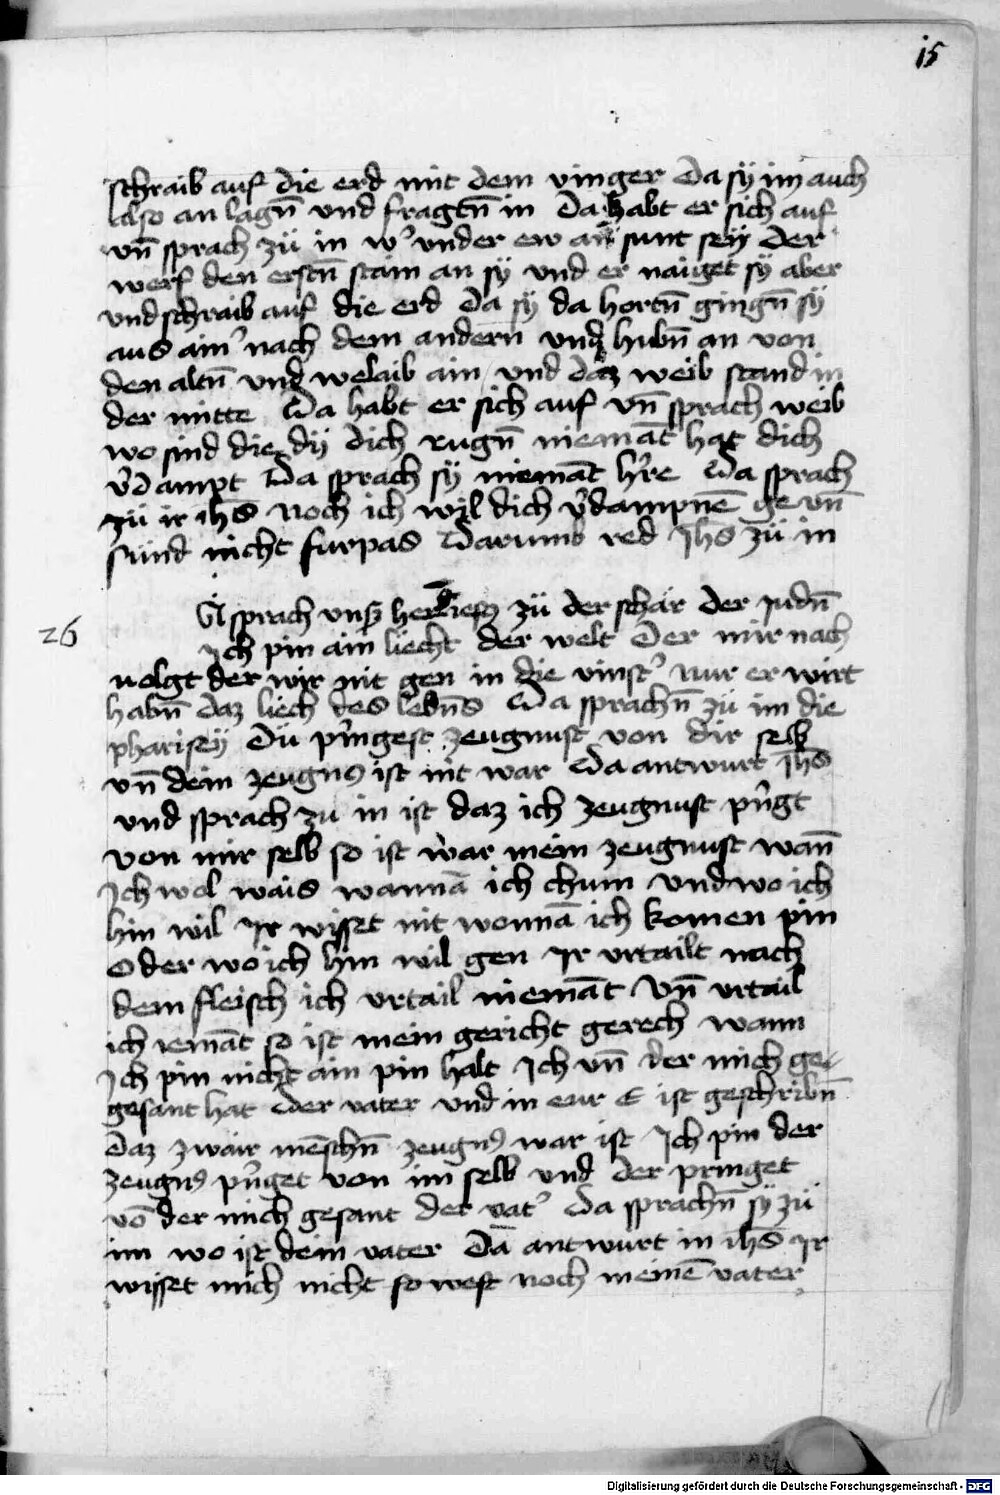 15
schraib auf die erd mit dem vinger Da sÿ im auch
also an lagn̄ vnd fragtn̄ in Da habt er sich auf
vn̄ sprach zü in w' vnder ew an sunt seÿ Der
werf den erstn̄ stain an sÿ vnd er naiget sÿ aber
vnd schraib auf die erd Da sÿ da hortn̄ gingn̄ sÿ
aus ain' nach dem andern vnd hubn̄ an von
den altn̄ vnd welaib ain vnd daz weib stand in
der mitte Da habt er sich auf vn̄ sprach weib
wo sind die dÿ dich rugn̄ niemāt hat dich
v'dampt Da sprach sÿ niemāt h're Da sprach
zü ir ihs̄ noch ich wil dich v'dampnē ge vn̄
sünd nicht furpas Darumb red Jhs̄ zü in
26
sprach vns' her iesus zü der schar der Judn̄
Ich pin ain liecht der welt Der mir nach
uolgt der wir nit gen in die vinst' nur er wirt
habn̄ daz liech des lebn̄s Da sprachn̄ zü im die
pharisëÿ Dü p'ingest zeugnust von dir selb
vn̄ dein zeugn' ist nit war Da antwurt Jhs̄
vnd sprach zu in ist daz ich zeugnust p'ngt
von mir selb so ist war mein zeugnust wan̄
Ich wol wais wannā ich chum vnd wo ich
hin wil Ir wisset nit wonnā ich komen pin
Oder wo ich hin wil gen Ir vrtailt nach
dem fleisch ich vrtail niemāt Vn̄ vrtail
ich iemāt so ist mein gericht gerech wann
Ich pin nicht ain pin halt Ich vn̄ der mich ge-
gesant hat Der vater vnd in eur E ist geschribn̄
Daz zwair mēschn̄ zeugn' war ist Ich pin der
zeugn' p'nget von im selb vnd der pringet
vō der mich gesant der vat' Da sprachn̄ sÿ zü
im wo ist dein vater Da antwurt in ihs̄ Ir
wisset mich nicht so west noch meinē vater
Digitalisierung gefördert durch die Deutsche Forschungsgemeinschaft - DFG